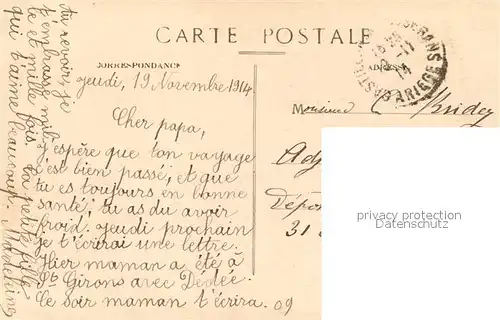 CARTE POSTALE
CORRESPONDANCE
ADRESSE
jeudi, 19 Novembre 1914
Cher papa,
J'espère que ton voyage
s'est bien passé, et que
tu es toujours en bonne
santé; tu as du avoir
froid. jeudi prochain
je t'écrirai une lettre.
Hier maman a été à
St Girons avec Dédée.
Ce soir maman t'écrira.
Au revoir, je
t'embrasse mille
et mille fois. Ta petite fille
qui t'aime beaucoup. Madeleine
Monsieur
Adj
Dépo
31
ARIEGE
privacy protection
Privatsphärenschutz